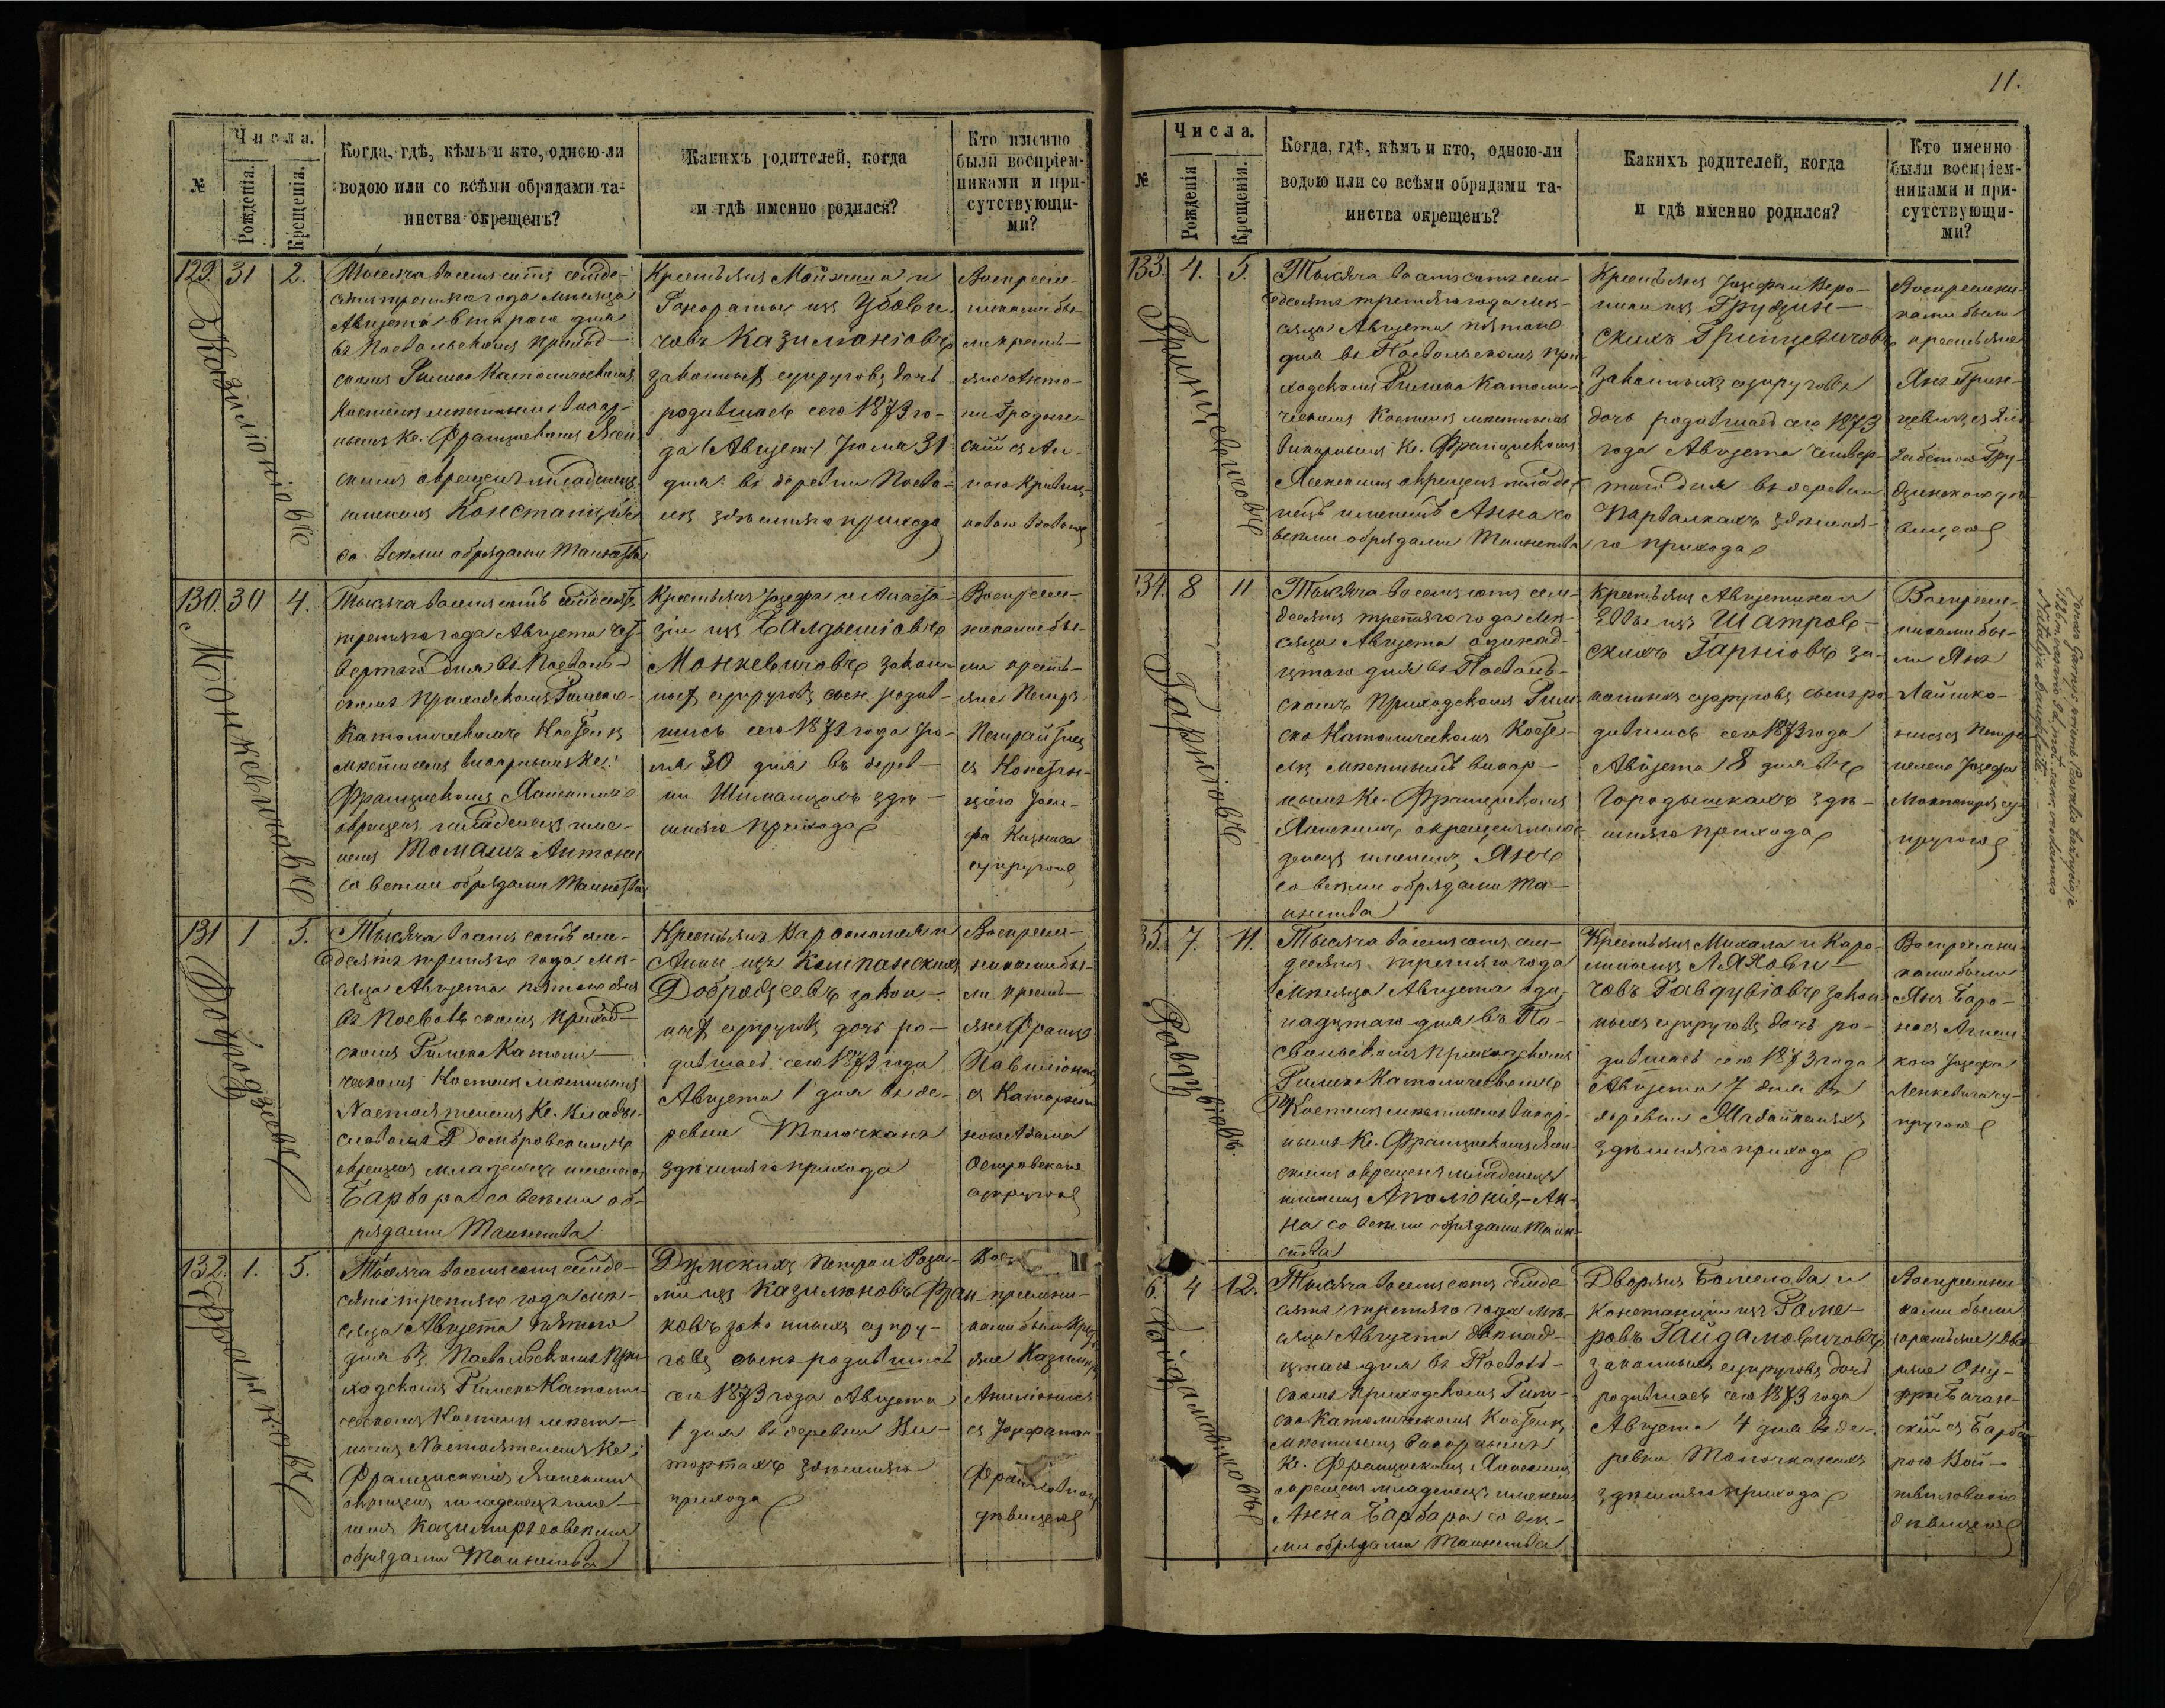 №
Числа.
Рожденія.
Крещенія.
Когда, гдѣ, кѣмъ и кто, одною-ли
водою или со всѣми обрядами та-
инства окрещенъ?
Какихъ родителей, когда
и гдѣ именно родился?
Кто именно
были воспріем-
никами и при-
сутствующи-
ми?
129. 31 2.
Казилюніовъ
Тысяча восемь сотъ семде-
сятъ третьяго года мѣсяца
Августа второго дня
въ Посвольскомъ приход-
скомъ Римско Католическомъ
Костелѣ мѣстнымъ викар-
нымъ Кс. Францискомъ Ясен-
скимъ окрещенъ младенецъ
именемъ Констанція
со всѣми обрядами Таинства
Крестьянъ
Гонораты изъ Убови
човъ Казилюніовъ
законныхъ супруговъ дочь
родившаяся сего 1873 го-
да (Август) Іюля 31
дня въ деревни
здѣшняго прихода
Воспріем-
никами бы-
ли кресть-
яне Анто-
ній
скій съ Ан-
ною
вдовою
130. 30 4.
Монкевичовъ
Тысяча восемь сотъ семдесятъ
третьяго года Августа чет-
вертаго дня въ Посволь-
скомъ приходскомъ Римско-
Католическомъ Костелѣ
мѣстнымъ викарнымъ Кс.
Францискомъ Ясенскимъ
окрещенъ младенецъ име-
немъ Томашъ Антони
со всѣми обрядами Таинства
Крестьянъ Іозефа и Анаста-
зіи изъ Балдышіовъ
Монкевичовъ закон-
ныхъ супруговъ сынъ родив-
шись сего 1873 года Ію-
ля 30 дня въ дерев-
ни Шиманцахъ здѣ-
шняго прихода
Воспріем-
никами бы-
ли кресть-
яне Петръ
Петрайтисъ
съ Констан-
ціею Іози-
фа
супругою
131 1 5.
Добродзеевъ
Тысяча восемь сотъ сем-
десятъ третьяго года мѣ-
сяца Августа пятого дня
въ Посвольскомъ приход-
скомъ Римско Католи-
ческомъ Костелѣ мѣстнымъ
Настоятелемъ Кс. Влади-
славомъ Домбровскимъ
окрещенъ младенецъ именемъ
Барбара со всѣми об-
рядами Таинства
Крестьянъ Бартоломея и
Анны изъ Компанскихъ
Добродзеевъ закон-
ныхъ супруговъ дочь ро-
дившаяся сего 1873 года
Августа 1 дня въ де-
ревни Толочканъ
здѣшняго прихода
Воспріем-
никами бы-
ли кресть-
яне Францъ
съ Катаржи-
ною Адама
Островскаго
супругою
132. 1. 5.
Франковъ
Тысяча восемь сотъ семде-
сятъ третьяго года мѣ-
сяца Августа пятого
дня въ Посвольскомъ При-
ходскомъ Римско Католи-
ческомъ Костелѣ мѣст-
нымъ Настоятелемъ Кс.
Францискомъ Ясенскимъ
окрещенъ младенецъ име-
немъ Казимиръ со всѣми
обрядами Таинства
Петра и Роза-
ліи изъ Казилюновъ Фран-
ковъ законныхъ супру-
говъ сынъ родившись
сего 1873 года Августа
1 дня въ деревни Ви-
торжахъ здѣшняго
прихода
Вос-
пріемни-
ками были крест-
яне Казимиръ
съ Іозефатою
дѣвицею
11.
№
Числа.
Рожденія
Крещенія.
Когда, гдѣ, кѣмъ и кто, одною-ли
водою или со всѣми обрядами та-
инства окрещенъ?
Какихъ родителей, когда
и гдѣ именно родился?
Кто именно
были воспріем-
никами и при-
сутствующи-
ми?
133. 4. 5.
Гринцевичовъ
Тысяча восемь сотъ сем-
десятъ третьяго года мѣ-
сяца Августа пятого
дня въ Посвольскомъ при-
ходскомъ Римско Католи-
ческомъ Костелѣ мѣстнымъ
викарнымъ Кс. Францискомъ
Ясенскимъ окрещенъ младе-
нецъ именемъ Анна со
всѣми обрядами Таинства
Крестьянъ Іозефа и Веро-
ники изъ Грудзин-
скихъ Гринцевичовъ
законныхъ супруговъ
дочь родившаяся сего 1873
года Августа четвер-
таго дня въ деревни
здѣшня-
го прихода
Воспріемни-
ками были
крестьяне
Янъ Грин-
цевичъ съ Ели-
забетою Гру-
дзинскою дѣ-
вицею
134. 8 11
Гарніовъ
Тысяча восемь сотъ сем-
десятъ третьяго года мѣ-
сяца Августа одинад-
цтаго дня въ Посволь-
скомъ Приходскомъ Рим-
ско Католическомъ Косте-
лѣ мѣстнымъ викар-
нымъ Кс. Францискомъ
Ясенскимъ окрещенъ мла-
денецъ именемъ Янъ
со всѣми обрядами Та-
инства
Крестьянъ Августина и
Эввы изъ Шатров-
скихъ Гарніовъ за-
конныхъ супруговъ сынъ ро-
дившись сего 1873 года
Августа 8 дня въ
Городышкахъ здѣ-
шняго прихода
Воспріем-
никами бы-
ли Янъ
Іозефа
су-
пругою
Jonas Garnys, priėmė Pasvalio bažnyčioje
1926 m. vasario 9 d. mot. sakr. su dama
Natalija Daugėlaitė. –
35. 7. 11.
Гавдубіовъ.
Тысяча восемь сотъ сем-
десятъ третьяго года
мѣсяца Августа оди-
надцтаго дня въ По-
свольскомъ приходскомъ
Римско Католическомъ
Костелѣ мѣстнымъ викар-
нымъ Кс. Францискомъ Ясен-
скимъ окрещенъ младенецъ
именемъ Аполіонія-Ан-
на со всѣми обрядами Таин-
ства
Крестьянъ Михала и Каро-
лины изъ Ляхови-
човъ Гавдубіовъ закон-
ныхъ супруговъ дочь ро-
дившаяся сего 1873 года
Августа 7 дня въ
деревни
здѣшняго прихода
Воспріемни-
ками были
Янъ Баро-
насъ Агнеш-
кою Іозефа
Ленкевича су-
пругою
6. 4 12.
Гайдамовичовъ
Тысяча восемь сотъ семде-
сятъ третьяго года мѣ-
сяца Августа двѣнад-
цтаго дня въ Посволь-
скомъ приходскомъ Рим-
ско Католическомъ Костелѣ
мѣстнымъ викарнымъ
Кс. Францискомъ Ясенскимъ
окрещенъ младенецъ именемъ
Анна Барбара со всѣ-
ми обрядами Таинства
Дворянъ Болеслава и
Констанціи изъ Роме-
ровъ Гайдамовичовъ
законныхъ супруговъ дочь
родившаяся сего 1873 года
Августа 4 дня въ де-
ревни Толочканахъ
здѣшняго прихода
Воспріемни-
ками были
Дво-
ряне Ону-
фри
скій съ Барба-
рою Вой-
дѣвицею